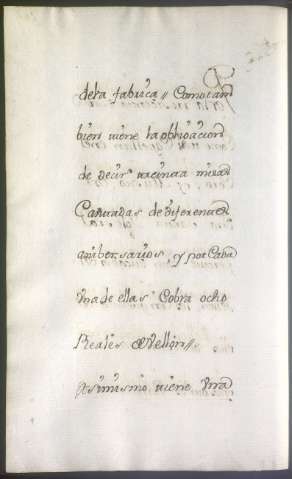 dela fabrica // Como tam
bien tiene la obligacion
de decir treinta misas
Cantadas de diferentes
anibersarios, y por Cada
Una de ellas Cobra ocho
Reales de Vellon //
Asimismo tiene Una